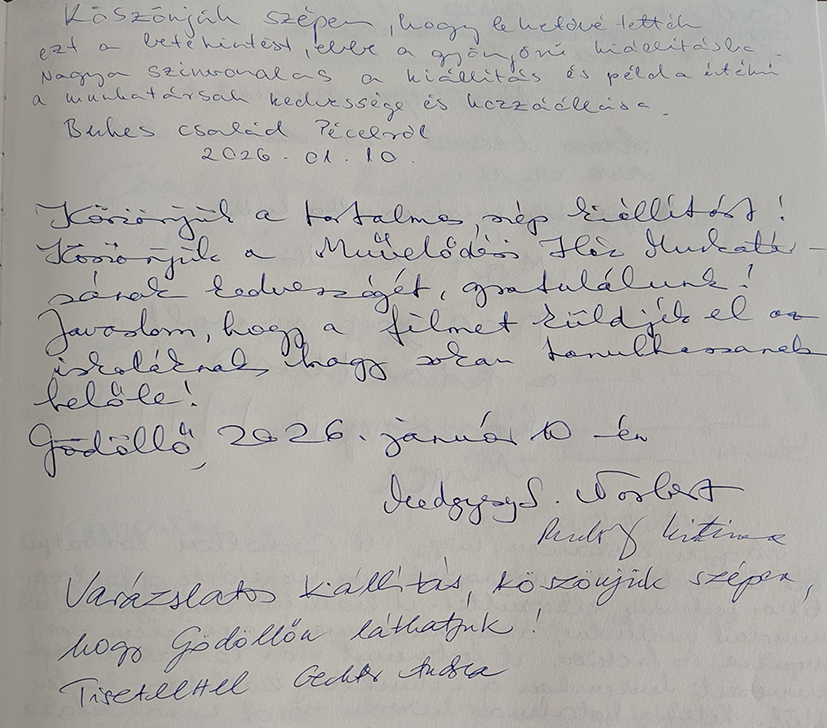 Köszönjük szépen, hogy lehetővé tették
ezt a betekintést, ebbe a gyönyörű kiállításba.
Nagyon színvonalas a kiállítás és példa értékű
a munkatársak kedvessége és hozzáállása.
család Pécelről
2026.01.10.
Köszönjük a tartalmas, szép kiállítást!
Köszönjük a Művelődési Ház Munkatár-
sának kedvességét, gratulálunk!
Javaslom, hogy a filmet küldjék el az
iskoláknak, hogy sokan tanulhassanak
belőle!
Gödöllő, 2026. január 10-én
S. Norbert
Krisztina
Varázslatos kiállítás, köszönjük szépen,
hogy Gödöllőn láthatjuk!
Tisztelettel Andrea